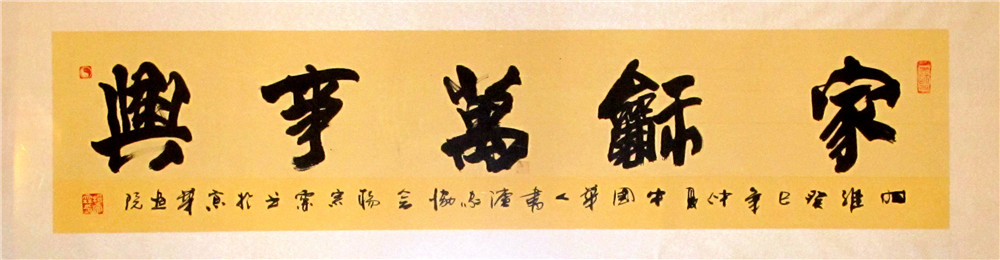 家龢萬事興
維癸巳年仲夏中國華人書法家協會楊宗於京華畫院